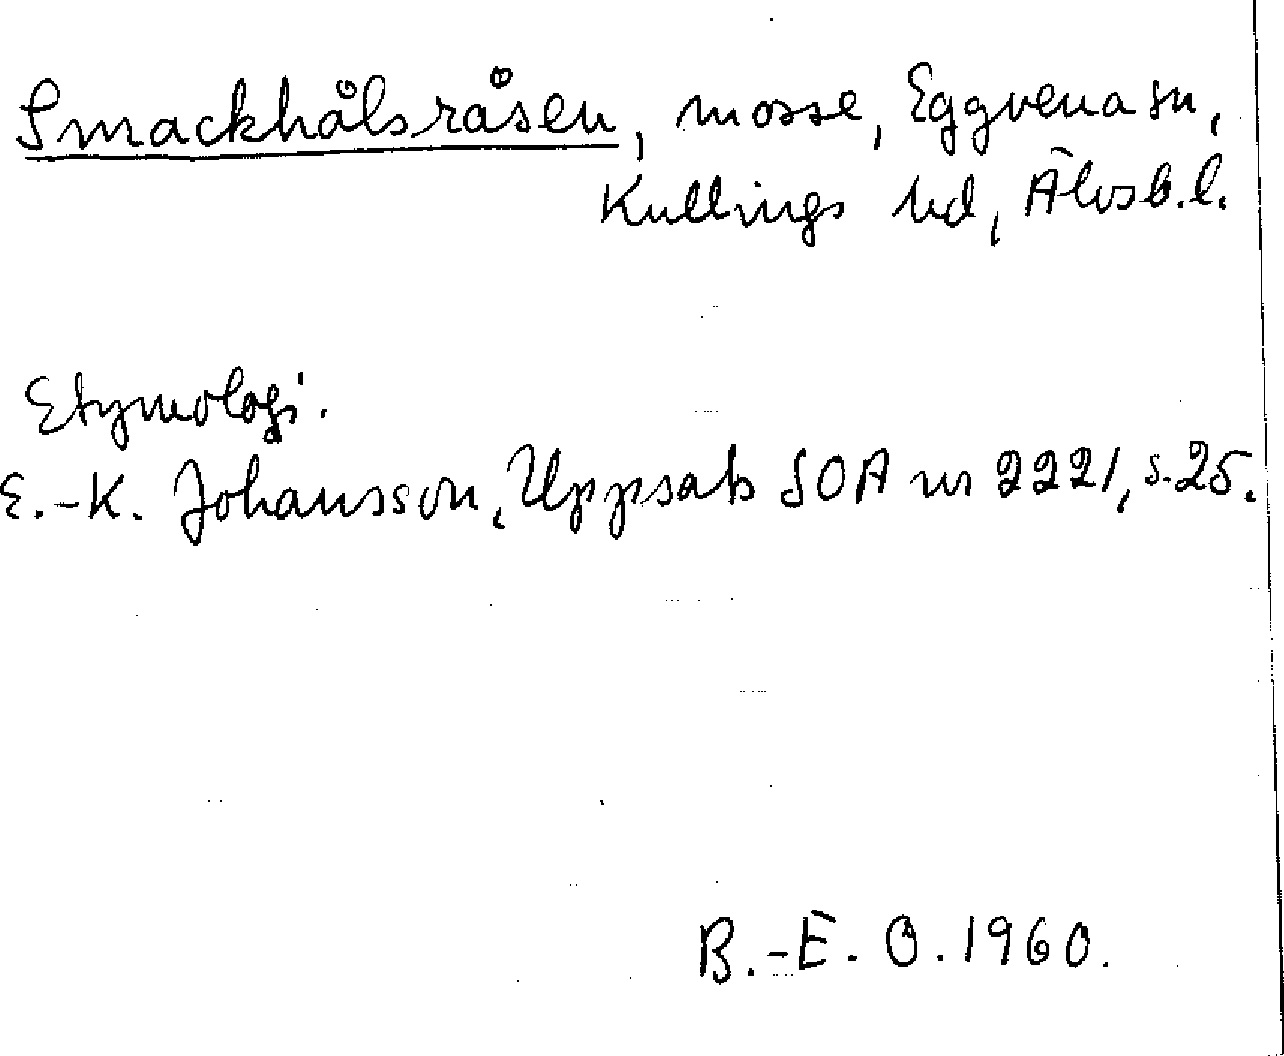 Smackhålsråsen, mosse, Eggvena sn,
Kullings hd, Älvsb.l.
Etymologi.
E.-K. Johansson, Uppsats SOA nr 2221, s. 25.
B.-E. O. 1960.